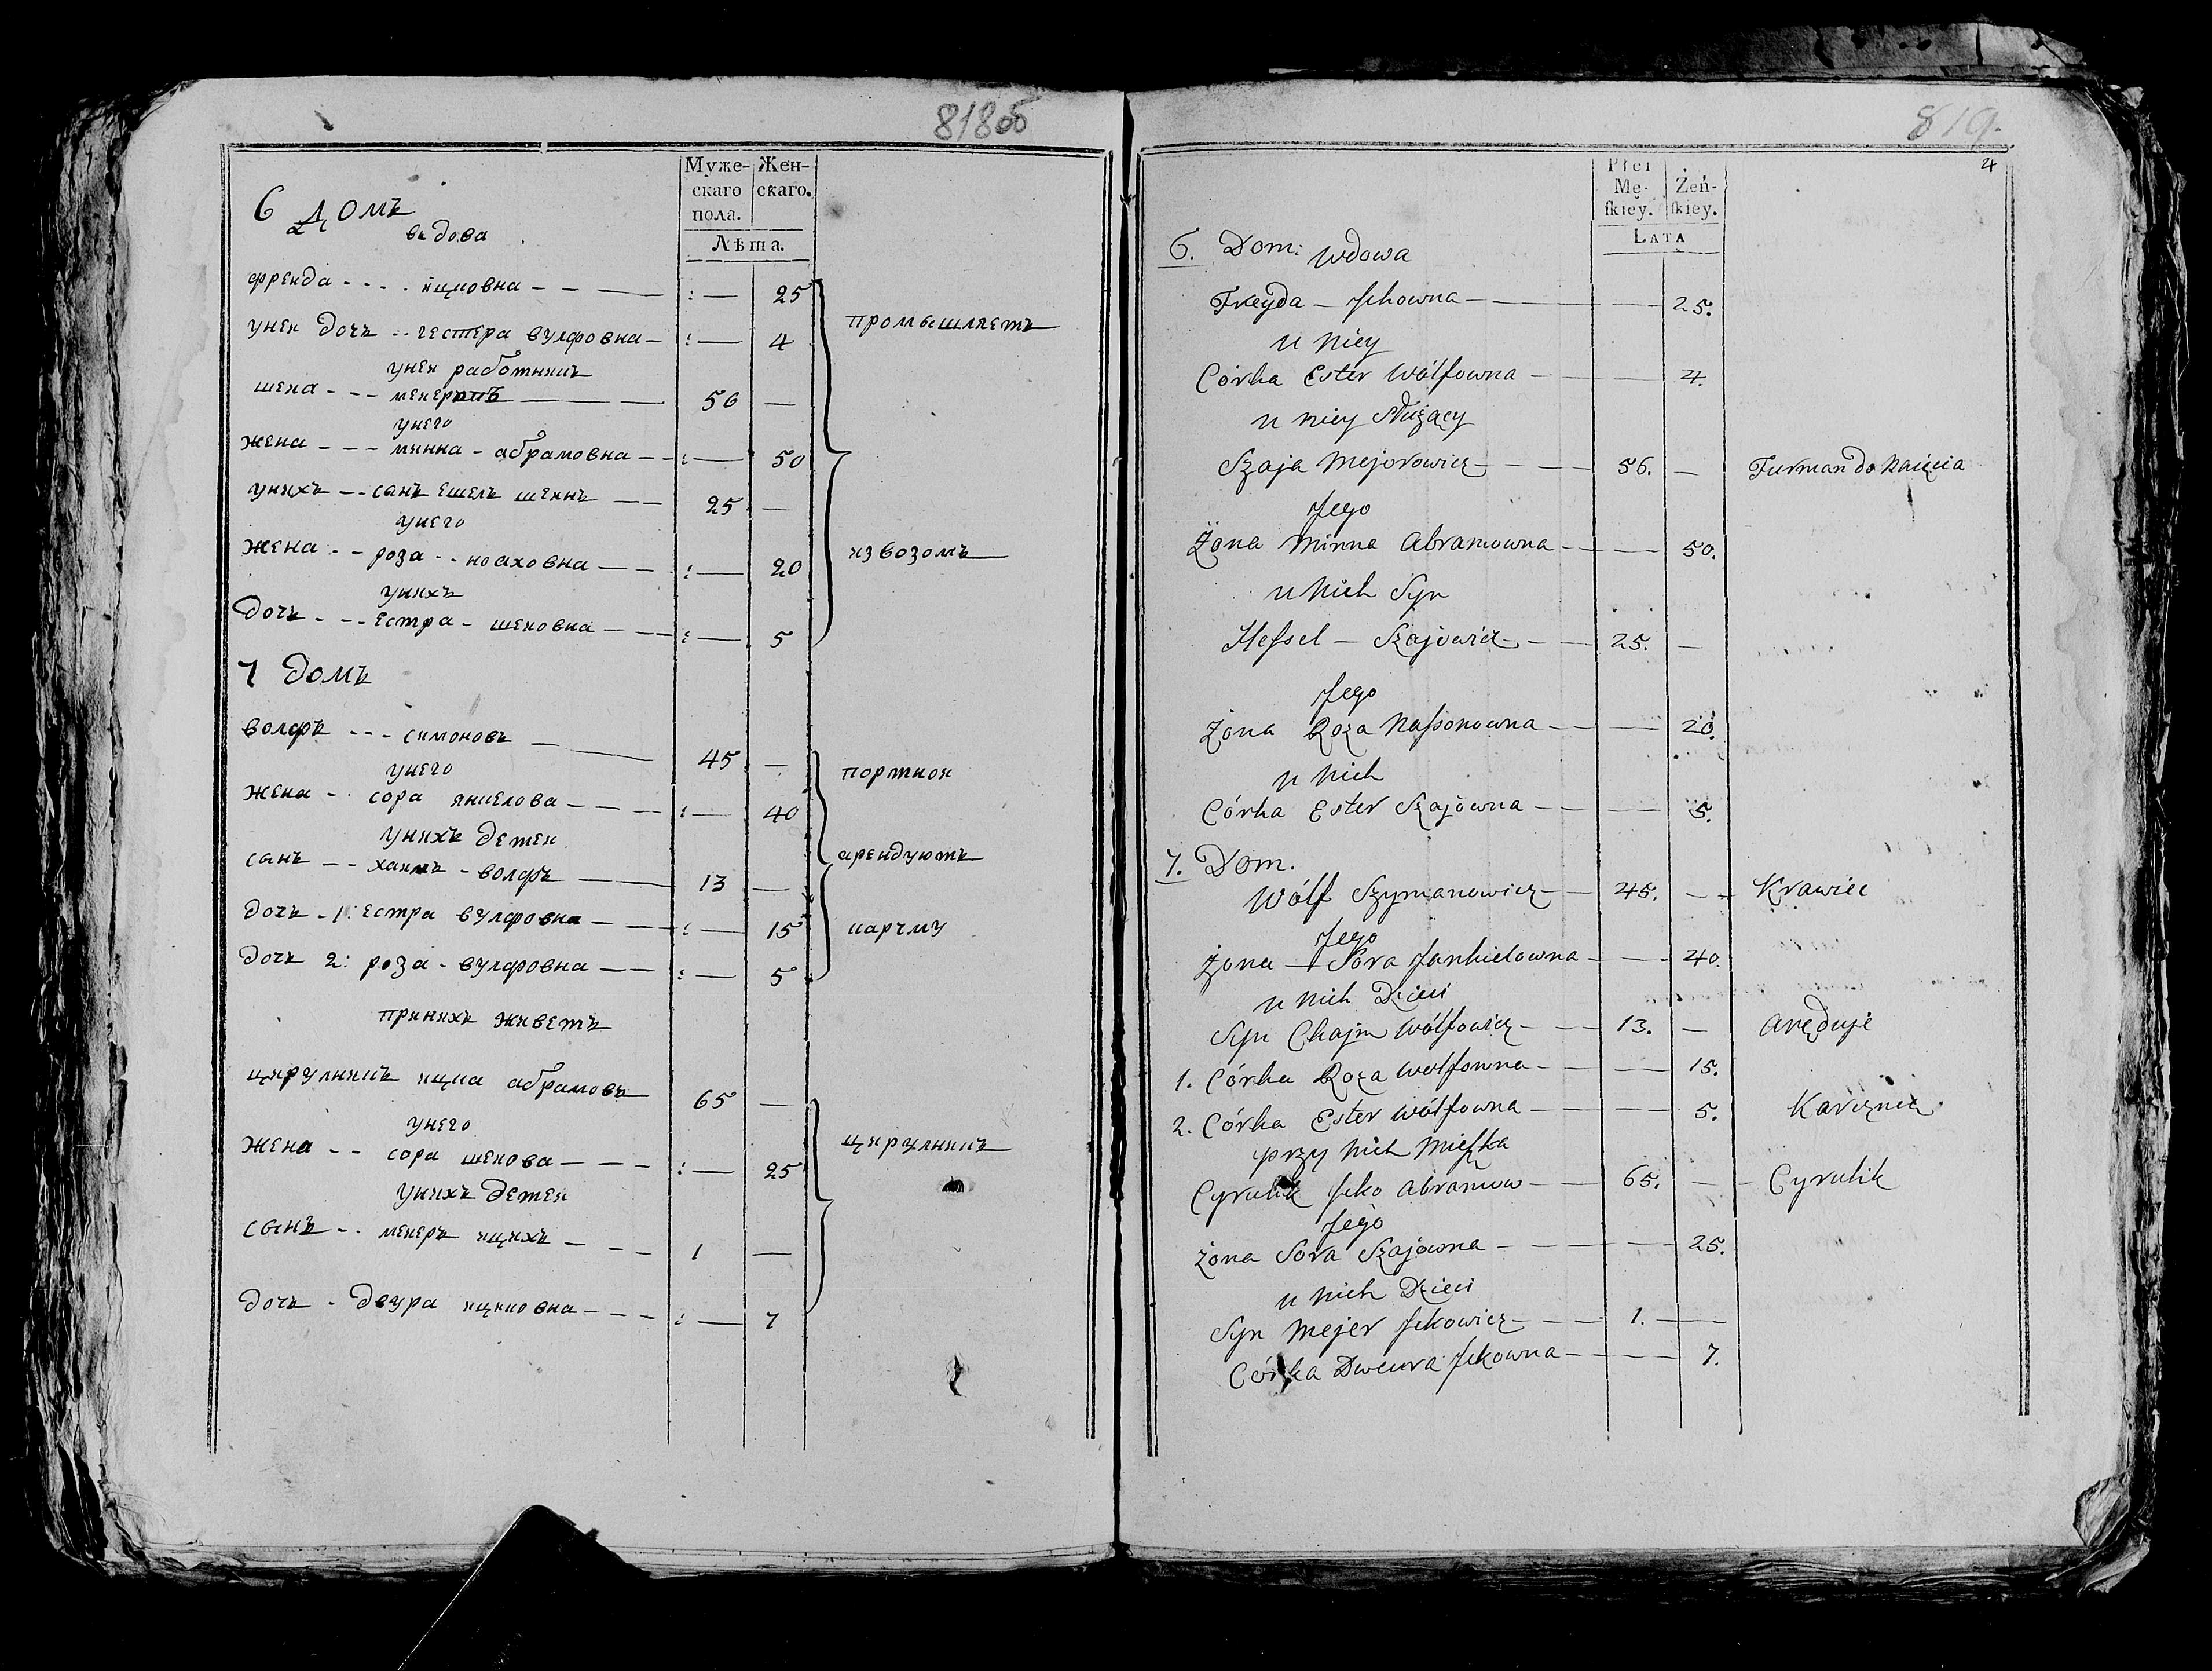 818об
Муже- Жен-
скаго скаго.
пола.
Лѣта.
6 Домъ
вдова
фреида - - - - ицковна - - — : — 25
унеи дочъ - - гестера вулфовна — : — 4
промышляетъ
унеи работникъ
шеиа - - - меиеровъ — 56 —
унего
жена - - - минна - абрамовна - - : — 50
унихъ - - санъ ешелъ шеинъ — 25 —
унего
жена - - роза - - ноаховна — : — 20
извозомъ
унихъ
дочъ - - - Естра - шеиовна — : — 5
7 Домъ
волфъ - - - симоновъ — 45 —
портнои
унего
жена - - сора янкелова - - - : — 40
унихъ детеи
арендуютъ
санъ - - хаимъ - волфъ — 13 —
дочъ - 1: Естра вулфовна — : — 15
карчму
дочъ 2: роза - вулфовна — : — 5
принихъ живетъ
цирулникъ ицка абрамовъ 65 —
унего
жена - - сора шеиова - - - : — 25
цирулникъ
унихъ детеи
сынъ - - меиеръ ицихъ - - - 1 —
дочъ - двура ицковна - - - : — 7
819.
4
Płci
Mę- Żeń-
ſkiey. ſkiey.
LATA
6. Dom: Wdowa
Freyda — Ickowna — — 25.
u niey
Córka Ester Wólfowna — — 4.
u niey Służący
Szaja Mejorowicz - - — 56. — Furman do Naięcia
Jego
Żona Minna Abramowna - - — 50.
u Nich Syn
Heſsel — Szajowicz - — 25. —
Jego
Żona Roza Naſsonowna — — 20.
u Nich
Córka Ester Szajowna — — 5.
7. Dom.
Wólf Szymanowicz — 45. — Krawiec
Jego
Żona — Sora Jankielowna - — 40.
u Nich Dzieci
Syn Chajm Wólfowicz - — 13. — Aręduje
1. Córka Roza Wolfowna - — 15.
2. Córka Ester Wólfowna — — 5. Karczmę
przy Nich Mieſzka
Cyrulik Icko Abramow — 65. — Cyrulik
Jego
Żona Sora Szajowna - — 25.
u Nich Dzieci
Syn Mejer Ickowicz - - — 1. —
Córka Dweura Ickowna - — 7.